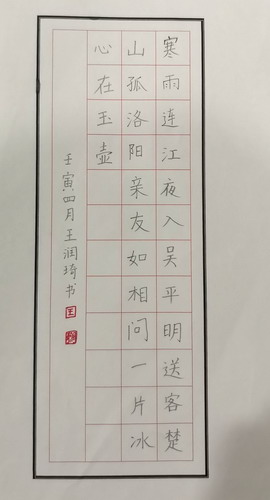 寒雨连江夜入吴平明送客楚
山孤洛阳亲友如相问一片冰
心在玉壶
壬寅四月王润琦书
王